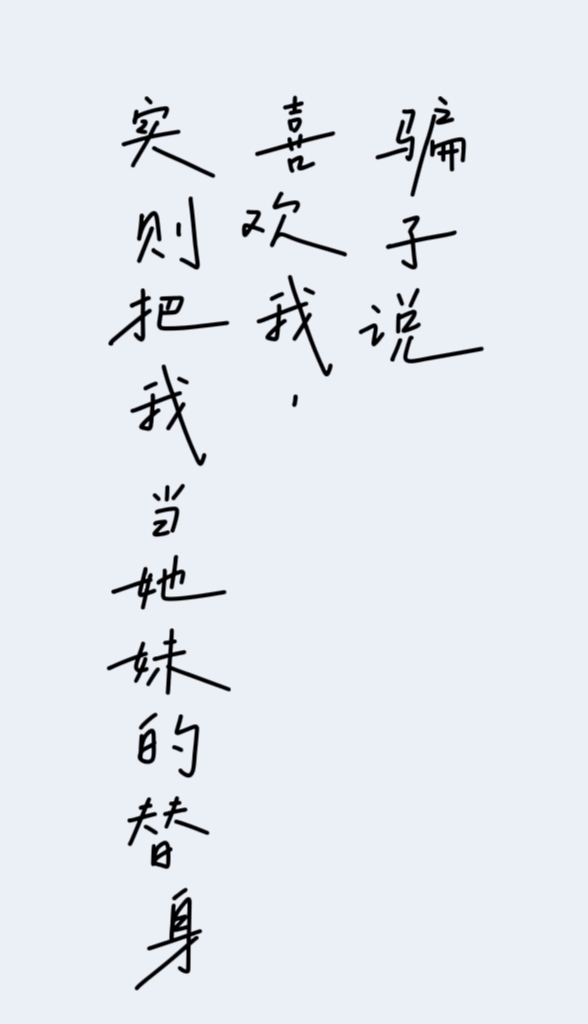 骗子说
喜欢我，
实则把我当她妹的替身